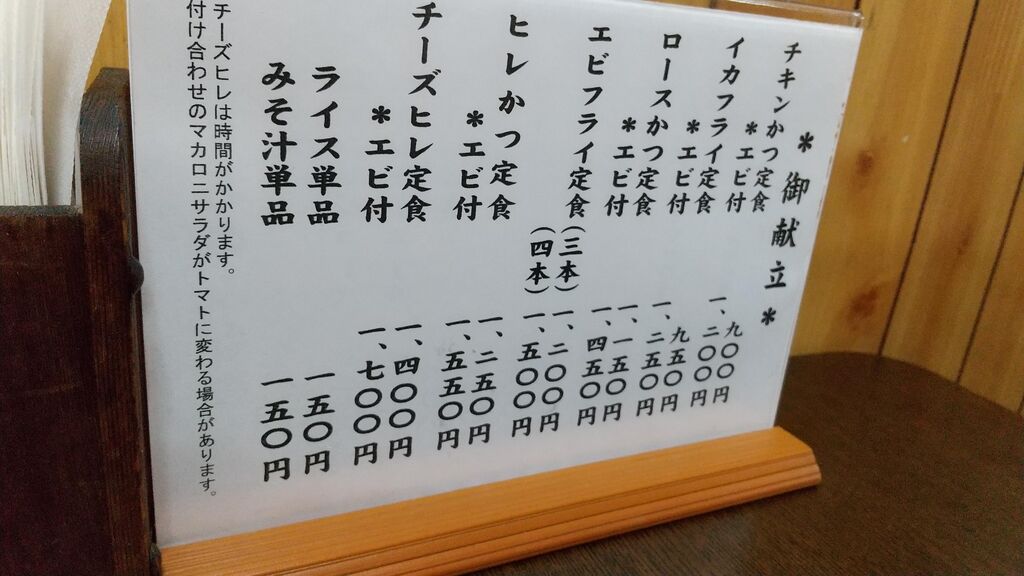 ＊御献立＊
チキンかつ定食 九〇〇円
＊エビ付 一、二〇〇円
イカフライ定食 九五〇円
＊エビ付 一、二五〇円
ロースかつ定食 一、一五〇円
＊エビ付 一、四五〇円
エビフライ定食（三本） 一、二〇〇円
（四本） 一、五〇〇円
ヒレかつ定食 一、二五〇円
＊エビ付 一、五五〇円
チーズヒレ定食 一、四〇〇円
＊エビ付 一、七〇〇円
ライス単品 一五〇円
みそ汁単品 一五〇円
チーズヒレは時間がかかります。
付け合わせのマカロニサラダがトマトに変わる場合があります。